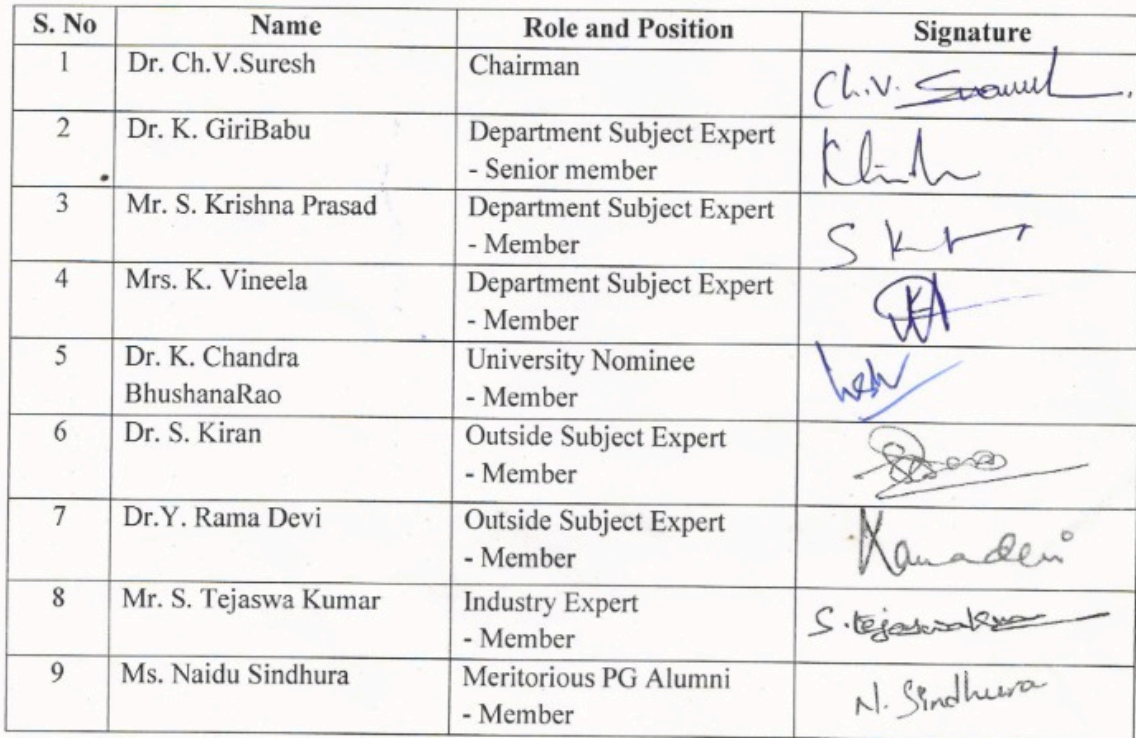 S. No Name Role and Position Signature
1 Dr. Ch.V.Suresh Chairman Ch.V.
2 Dr. K. GiriBabu Department Subject Expert
- Senior member
3 Mr. S. Krishna Prasad Department Subject Expert
- Member S
4 Mrs. K. Vineela Department Subject Expert
- Member
5 Dr. K. Chandra University Nominee
BhushanaRao - Member
6 Dr. S. Kiran Outside Subject Expert
- Member
7 Dr.Y. Rama Devi Outside Subject Expert
- Member Ramadevi
8 Mr. S. Tejaswa Kumar Industry Expert
- Member S.tejaswakumar
9 Ms. Naidu Sindhura Meritorious PG Alumni
- Member N. Sindhura